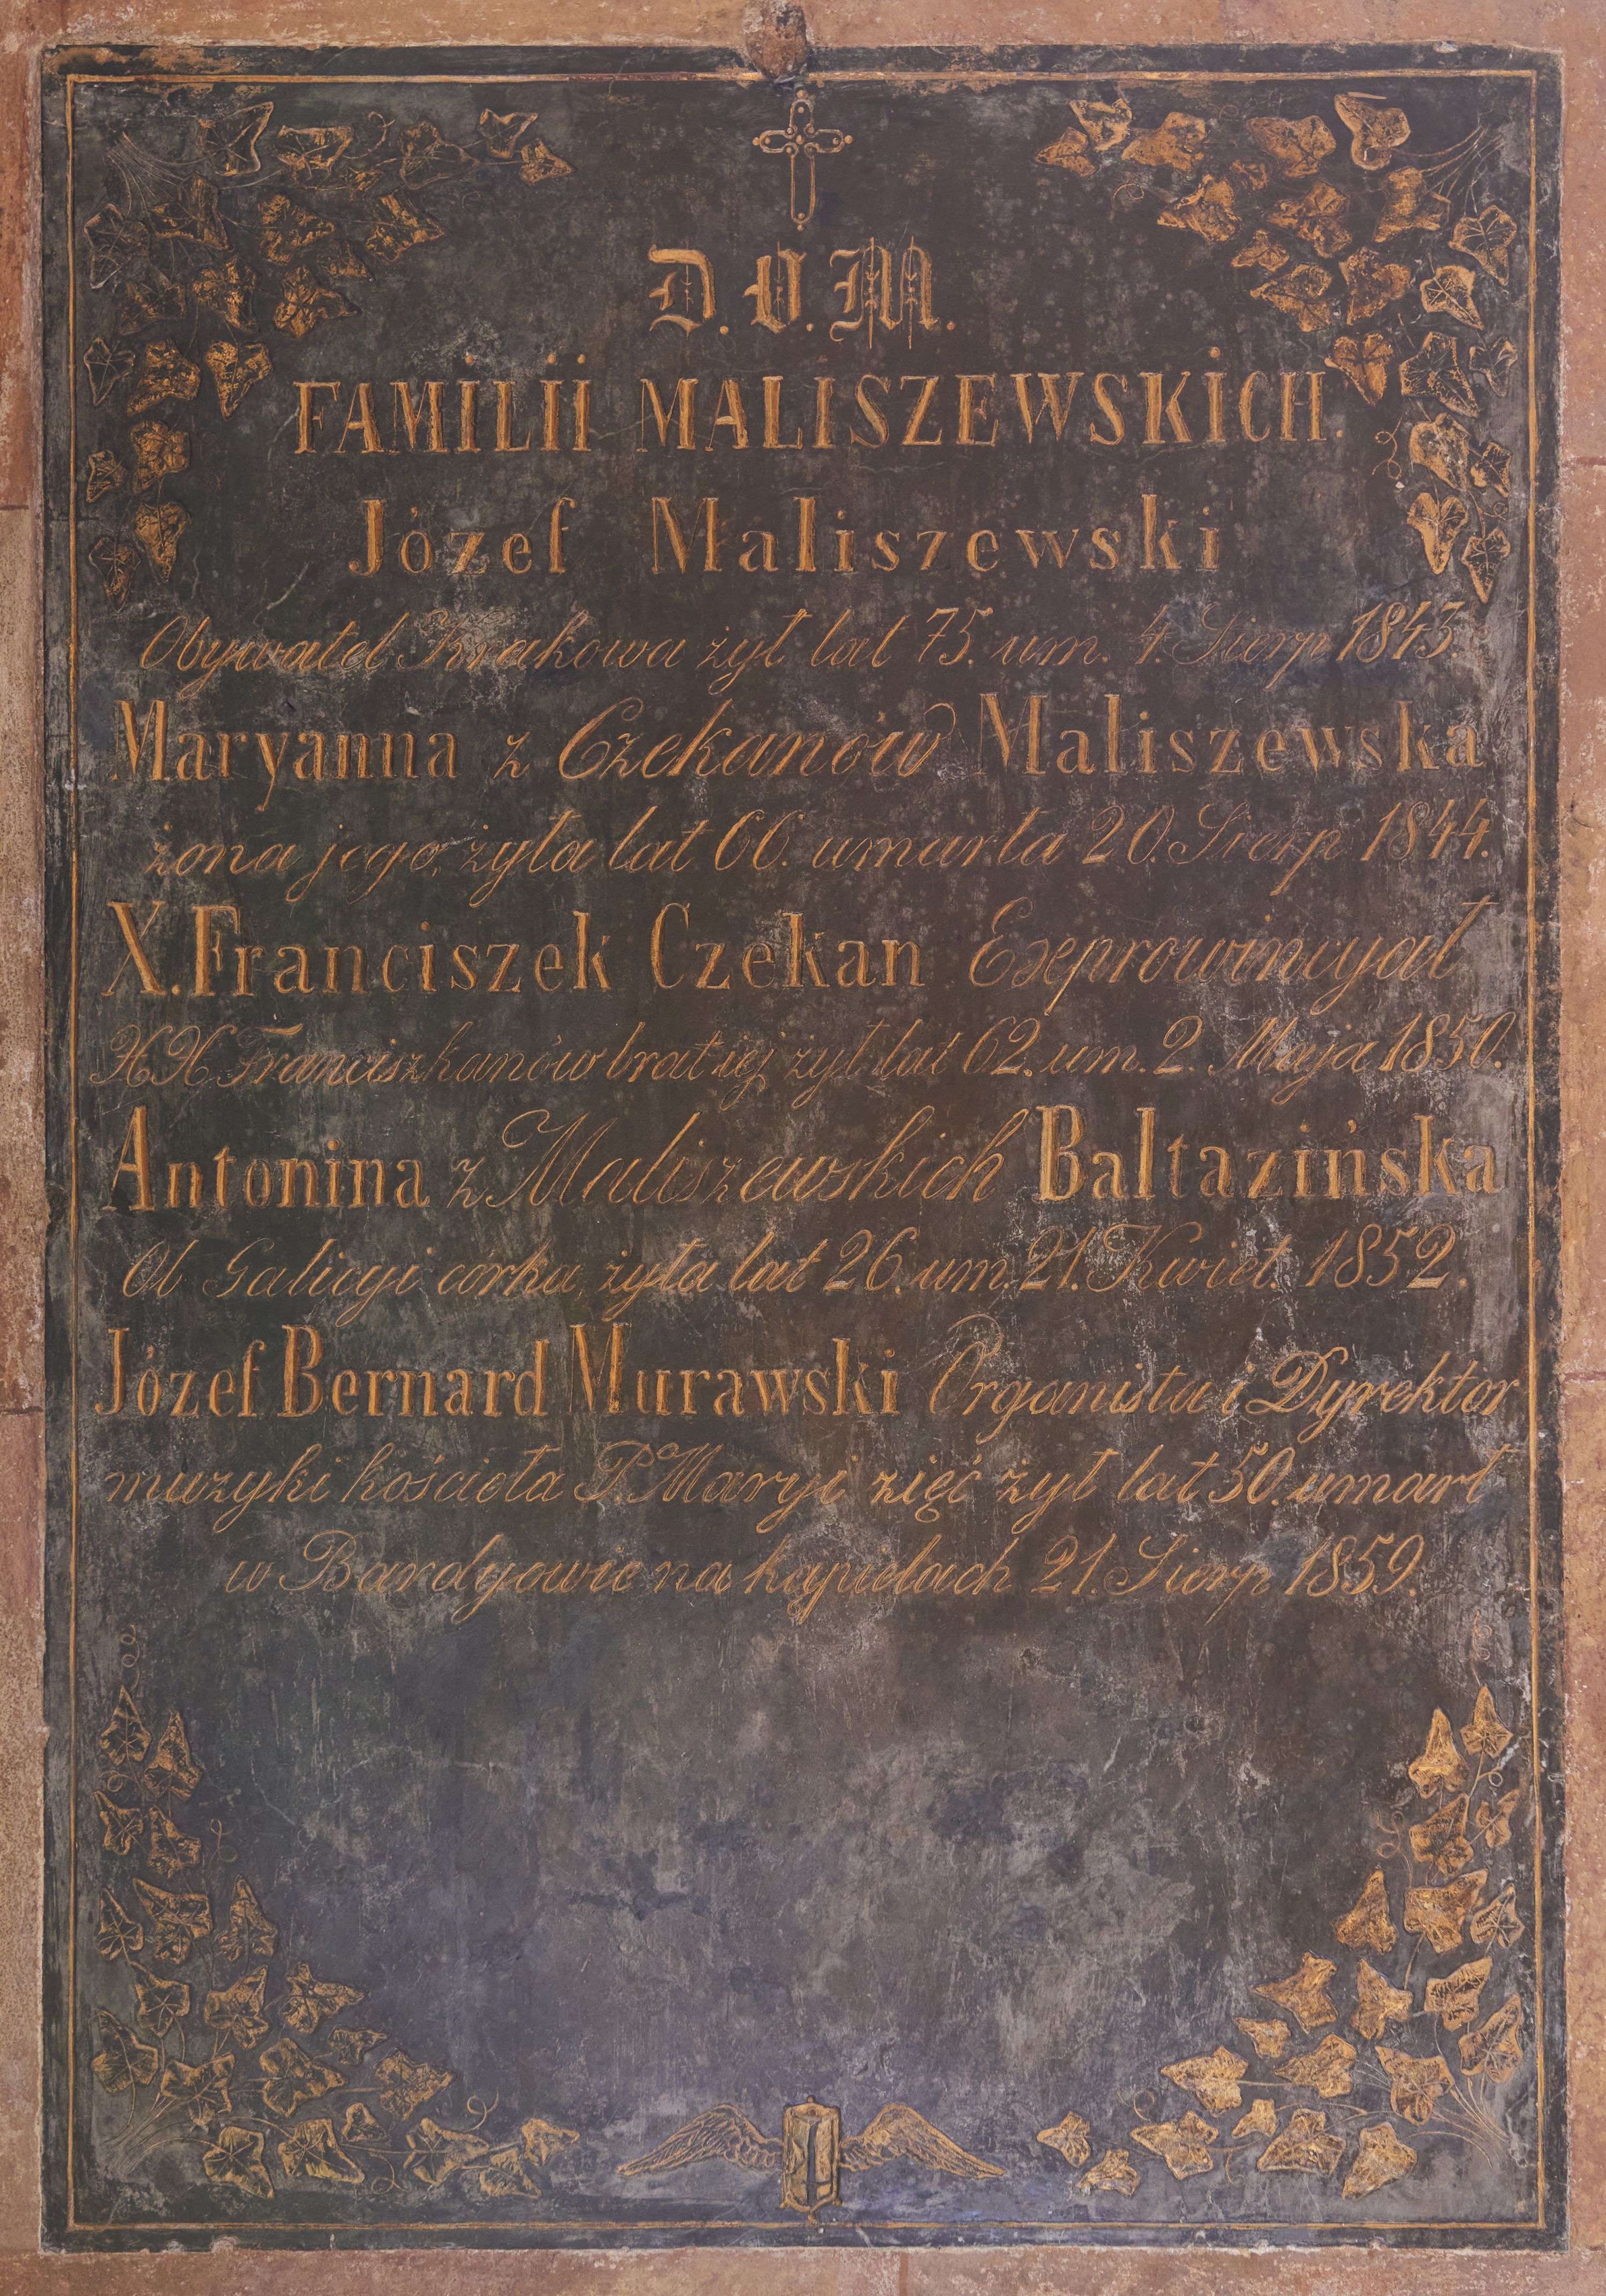 D. O. M.
FAMILii MALISZEWSKiCH.
Józef Maliszewski
Obywatel Krakowa żył lat 75. um. 4. Sierp 1843.
Maryanna z Czekanów Maliszewska
żona jego, żyła lat 66. umarła 20. Sierp 1844.
X. Franciszek Czekan Exprowincyał
XX Franciszkanów brat jéj żył lat 62. um. 2. Maja 1850.
Antonina z Maliszewskich Baltazińska
Ob Galicyi córka, żyła lat 26. um. 21. Kwiet. 1852.
Józef Bernard Murawski Organista i Dyrektor
muzyki kościoła P. Maryi zięć żył lat 50. umarł
w Bardyowie na kąpielach 21. Sierp 1859.